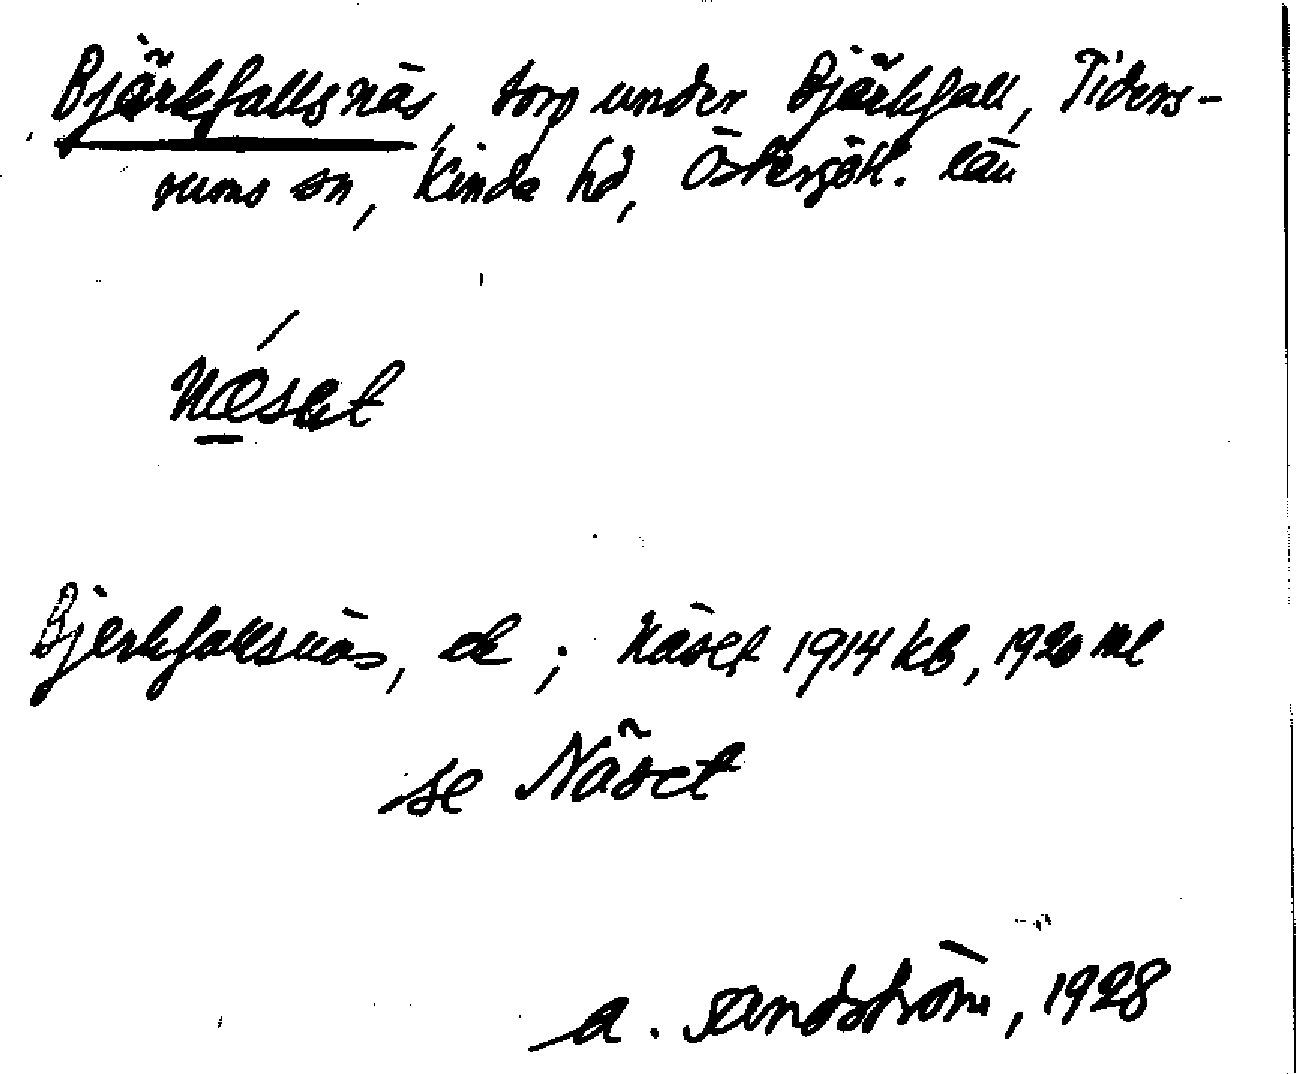 Bjärkfallsnäs, torp under Bjärkfall, Tiders-
rums sn, Kinda hd, Östergötl. län
næset
Bjerkfallsnäs, ek; Näset 1914 kb, 1920 ml
se Näset
A. Sandström, 1928